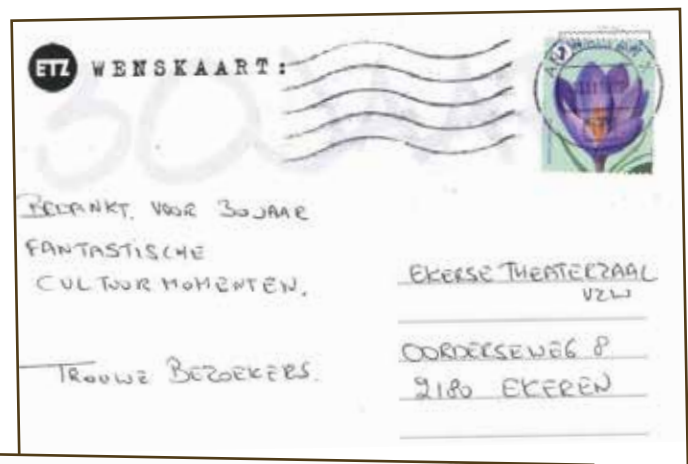 ETZ WENSKAART:
30 JAAR
BEDANKT VOOR 30 JAAR
FANTASTISCHE
CULTUUR MOMENTEN.
TROUWE BEZOEKERS.
EKERSE THEATERZAAL
VZW
OORDERSEWEG 8
2180 EKEREN